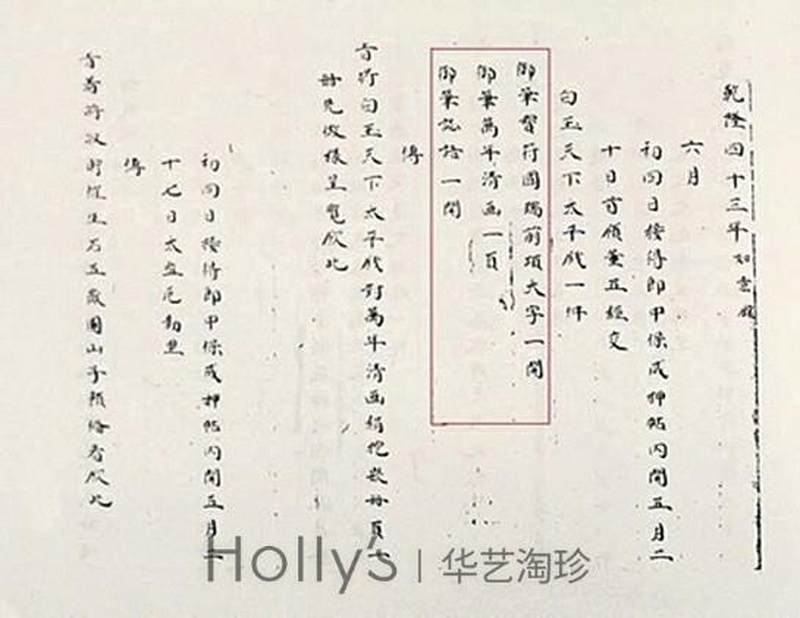 乾隆四十三年如意館
六月
初四日接得郎中保成押帖內開五月二
十日首領董五經交
白玉天下太平錢一件
御筆聖符國瑞前項大字一開
御筆萬年清画一頁
御筆記語一開
傳
旨將白玉天下太平錢對萬年清画絹挖嵌冊頁一
冊先做樣呈覽欽此
初四日接得郎中保成押帖內開五月二
十七日太監厄勒里
傳
旨着將
御
生
五
圓山子
看欽此
Holly's | 华艺淘珍